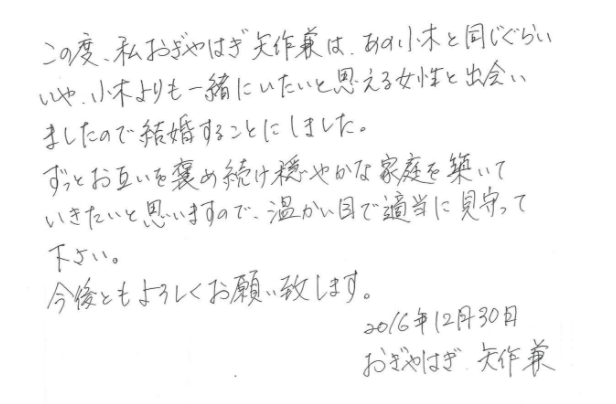 この度、私おぎやはぎ矢作兼は、あの小木と同じぐらい
いや、小木よりも一緒にいたいと思える女性と出会い
ましたので結婚することにしました。
ずっとお互いを褒め続け穏やかな家庭を築いて
いきたいと思いますので、温かい目で適当に見守って
下さい。
今後ともよろしくお願い致します。
2016年12月30日
おぎやはぎ 矢作兼